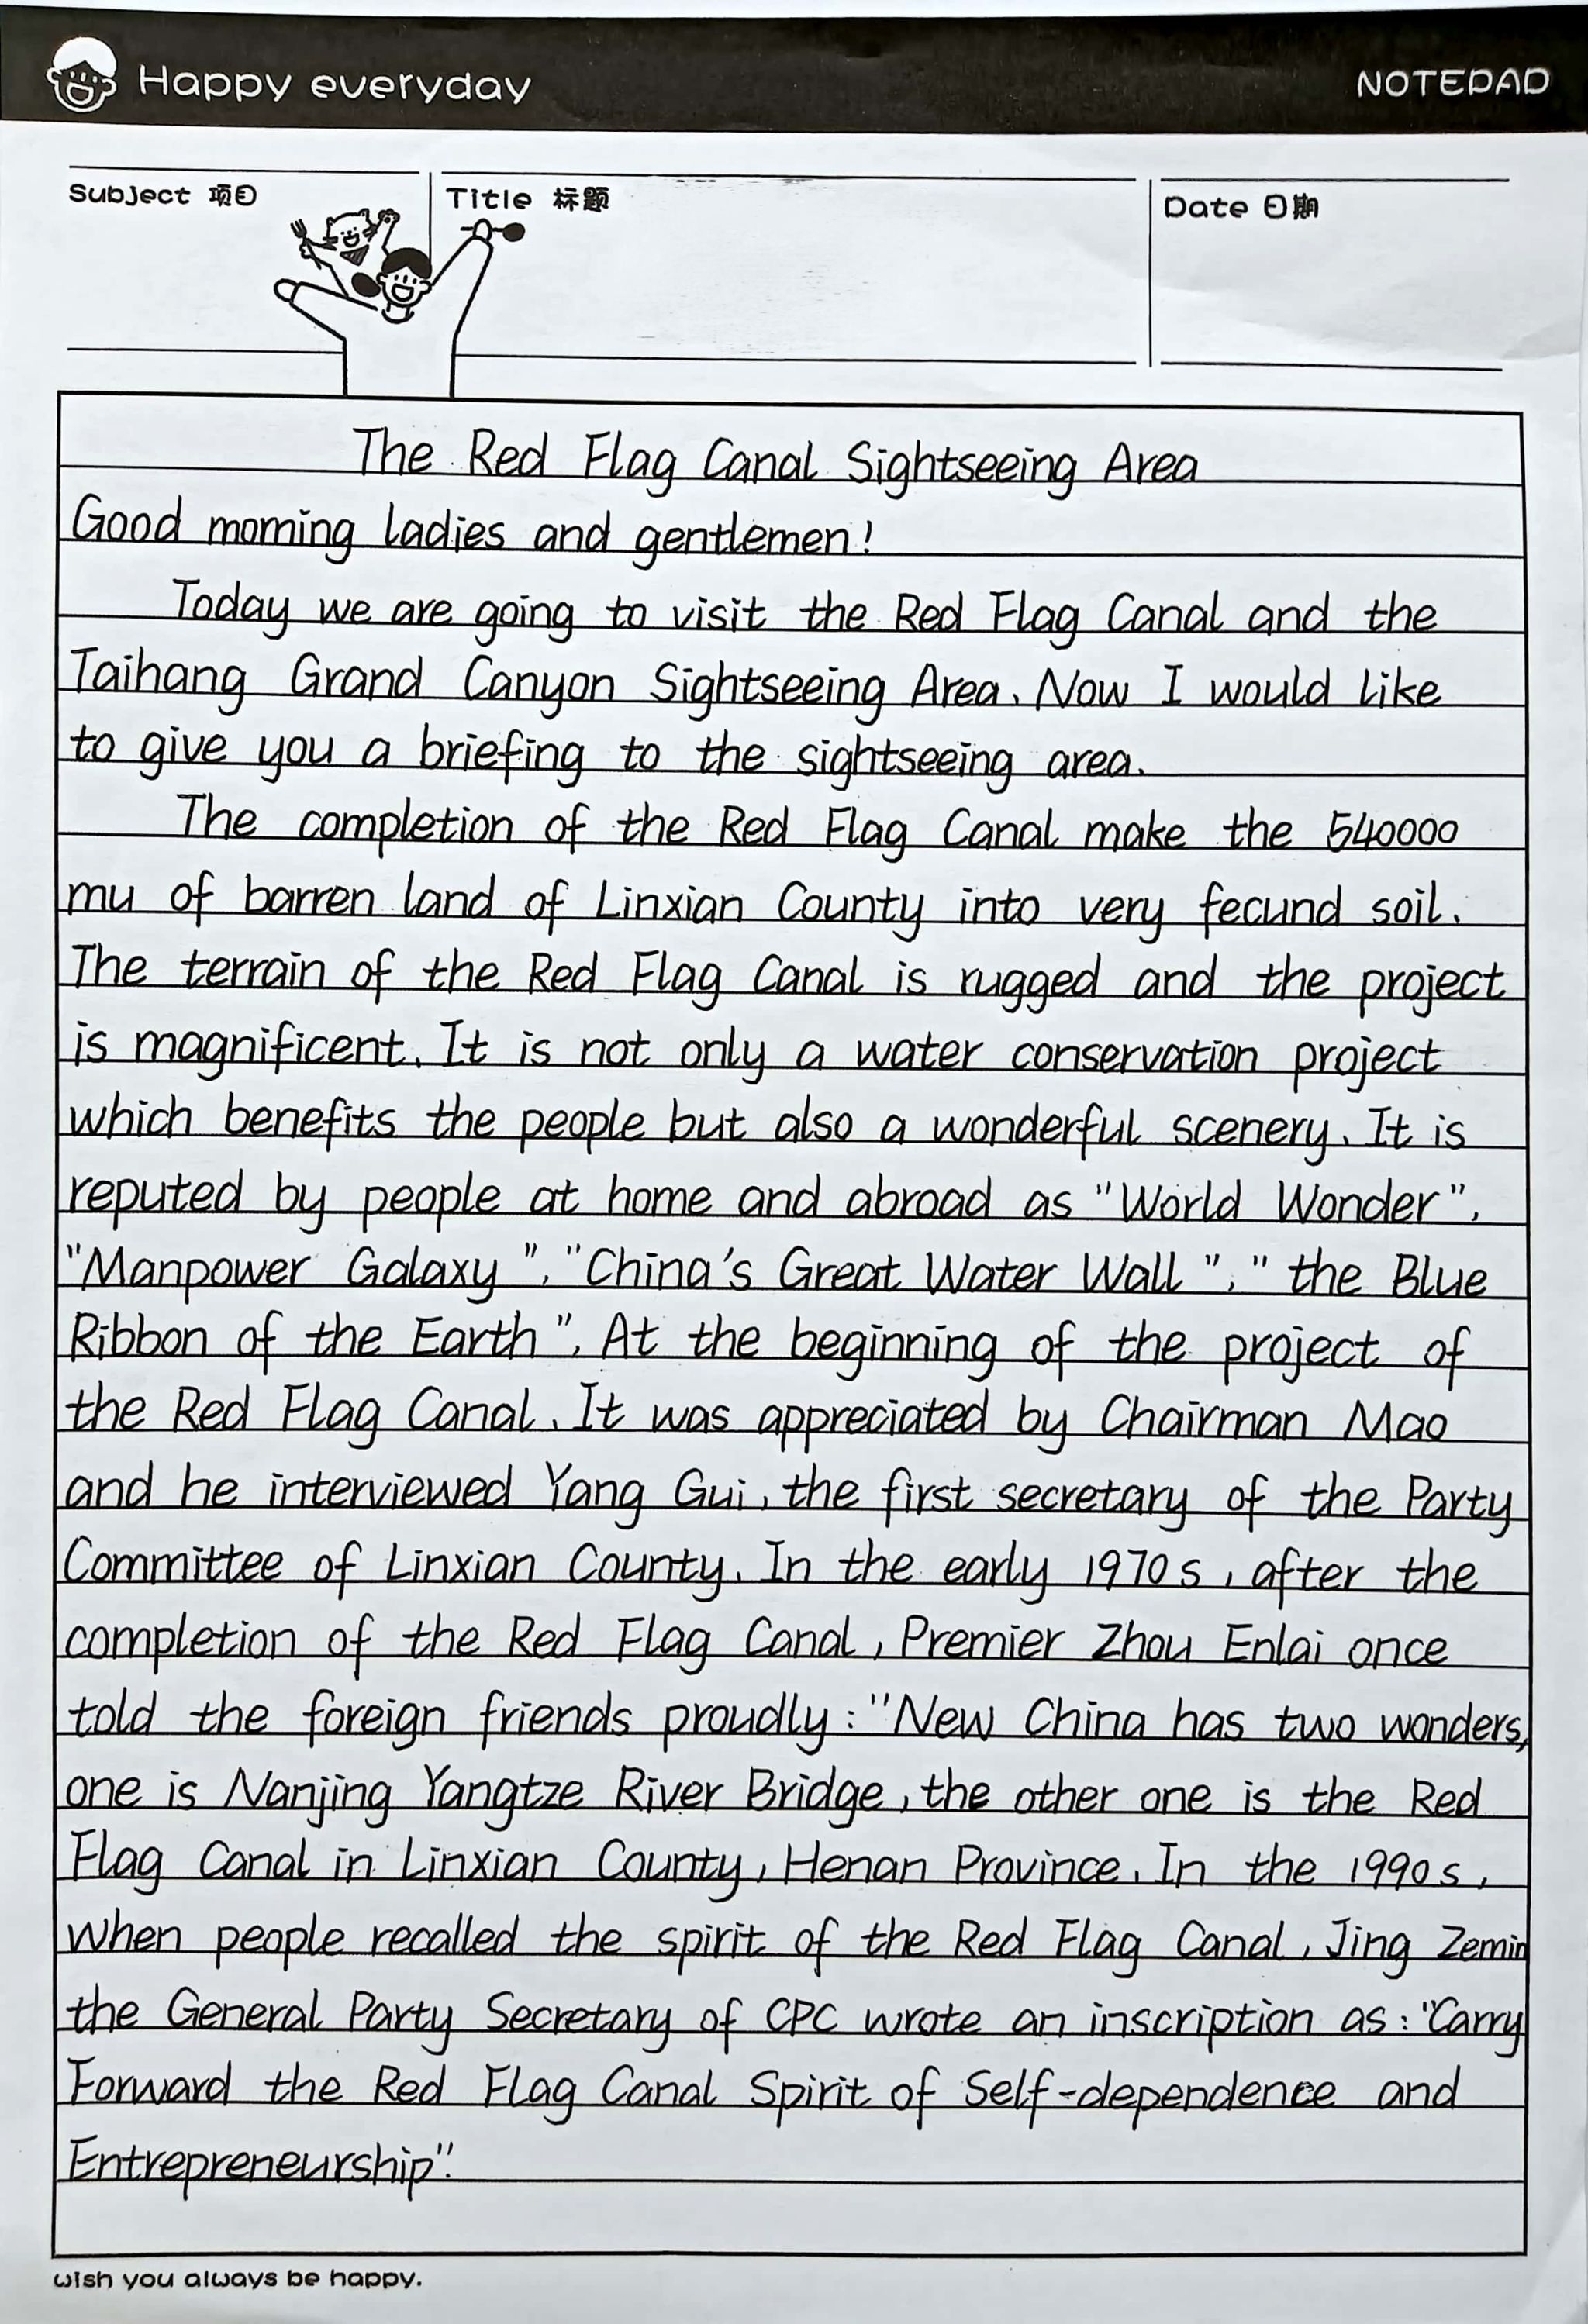 Happy everyday
NOTEPAD
Subject 项目
Title 标题
Date 日期
The Red Flag Canal Sightseeing Area
Good morning ladies and gentlemen!
Today we are going to visit the Red Flag Canal and the
Taihang Grand Canyon Sightseeing Area. Now I would like
to give you a briefing to the sightseeing area.
The completion of the Red Flag Canal make the 540000
mu of barren land of Linxian County into very fecund soil.
The terrain of the Red Flag Canal is rugged and the project
is magnificent. It is not only a water conservation project
which benefits the people but also a wonderful scenery. It is
reputed by people at home and abroad as "World Wonder",
"Manpower Galaxy", "China's Great Water Wall", "the Blue
Ribbon of the Earth". At the beginning of the project of
the Red Flag Canal. It was appreciated by Chairman Mao
and he interviewed Yang Gui, the first secretary of the Party
Committee of Linxian County. In the early 1970s, after the
completion of the Red Flag Canal, Premier Zhou Enlai once
told the foreign friends proudly: "New China has two wonders,
one is Nanjing Yangtze River Bridge, the other one is the Red
Flag Canal in Linxian County, Henan Province. In the 1990s,
when people recalled the spirit of the Red Flag Canal, Jing Zemin
the General Party Secretary of CPC wrote an inscription as: "Carry
Forward the Red Flag Canal Spirit of Self-dependence and
Entrepreneurship".
wish you always be happy.